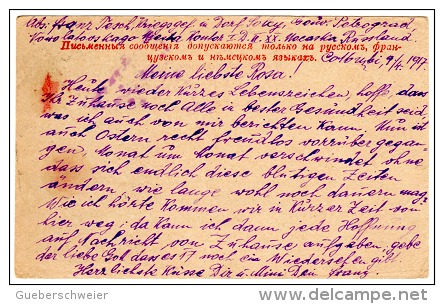 Abs: Franz Pesch, Kriegsgef. Dorf
Russland.
Письменныя сообщенія допускаются только на русскомъ, фран-
цузскомъ и нѣмецкомъ языкахъ.
9/4. 1917
Meine liebste Rosa!
Heute wieder Kurzes Lebenszeichen, hoffe dass
Ihr Zuhause noch Alle in bester Gesundheit seid,
was ich auch von mir berichten kann. Nun ist
auch Ostern recht freudlos vorrüber gegan-
gen. Monat um Monat verschwindet ohne
dass sich endlich diese blutigen Zeiten
ändern, wie lange wohl noch dauern mag.
Wie ich hörte kommen wir in Kurzer Zeit von
hier weg; da kann ich dann jede Hoffnung
auf Nachricht von Zuhause aufgeben, gebe
der liebe Gott dass es noch ein Wiedersehen gibt.
Herzlichste Küsse Dir u. Mimi Dein Franz
Gueberschweier
http://www.delcampe.net